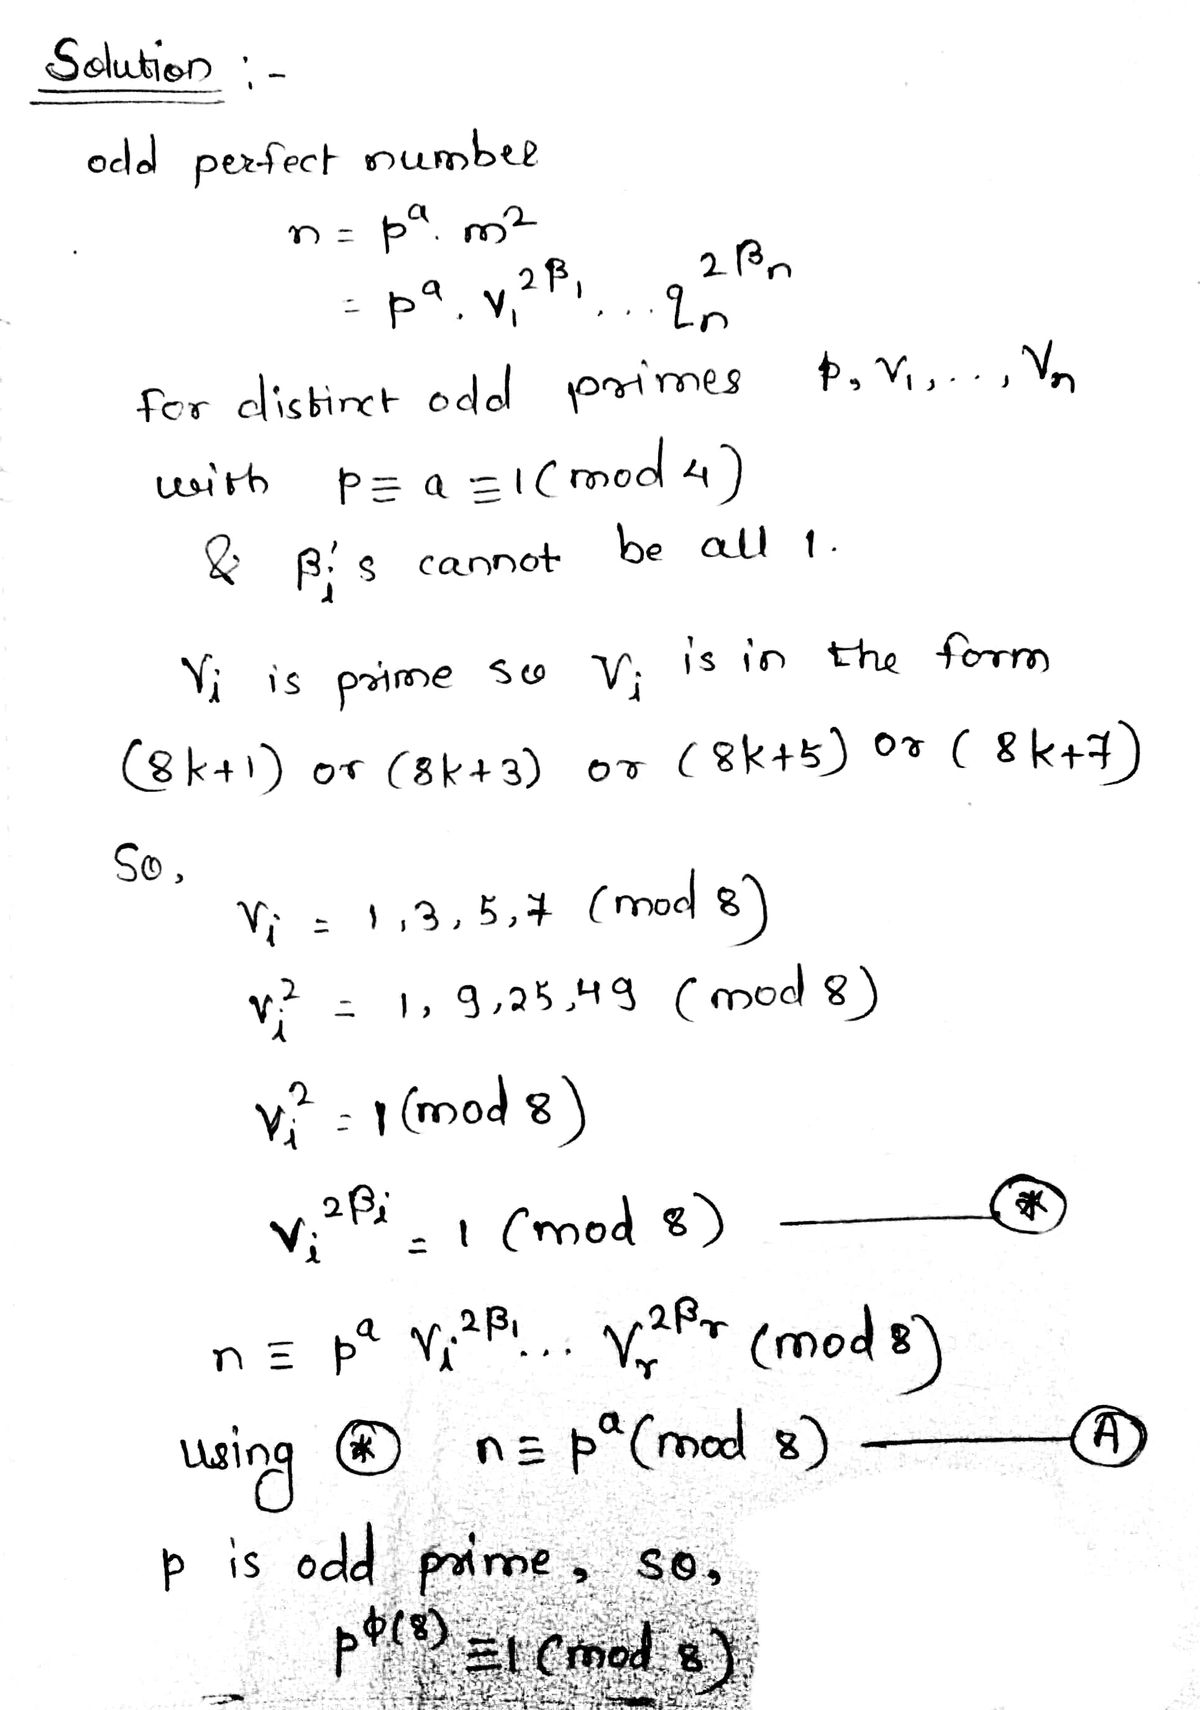 Solution :-
odd perfect number
n = p^a. m^2
= p^a. v_1^{2β_1}. ... q_n^{2β_n}
for distinct odd primes p, v_1, ..., v_n
with p ≡ a ≡ 1 (mod 4)
& β_i's cannot be all 1.
v_i is prime so v_i is in the form
(8k+1) or (8k+3) or (8k+5) or (8k+7)
So,
v_i = 1,3,5,7 (mod 8)
v_i^2 = 1, 9,25,49 (mod 8)
v_i^2 = 1 (mod 8)
v_i^{2β_i} = 1 (mod 8) —— (*)
n ≡ p^a v_i^{2β_1}... v_r^{2β_r} (mod 8)
using (*) n ≡ p^a (mod 8) —— (A)
p is odd prime, so,
p^{φ(8)} ≡ 1 (mod 8)